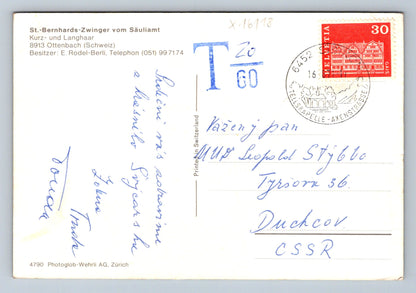 St.-Bernhards-Zwinger vom Säuliamt
Kurz- und Langhaar
8913 Ottenbach (Schweiz)
Besitzer: E. Rodel-Berli, Telephon (051) 99 71 74
X-16198
T 20
60
HELVETIA 30
6452
16.
TELLSKAPELLE-AXENSTRASSE
Srdečně vás zdravíme
z krásného Švýcarska
Vážený pan
MUDr Leopold Stýblo
Tyršova 36
Duchcov
ČSSR
Printed in Switzerland
4790 Photoglob-Wehrli AG, Zürich